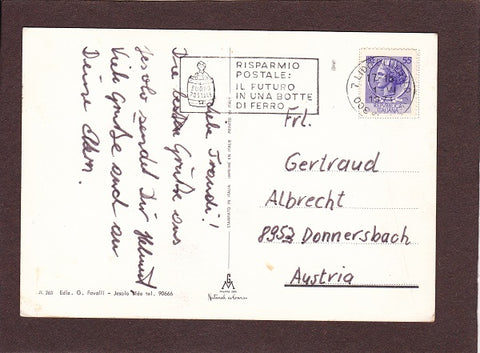 Liebe Traudi!
Die besten Grüße aus
Jesolo sendet Dir Helmut
Viele Grüße auch an
Deine Eltern.
BUONO
POSTALE
RISPARMIO
POSTALE:
IL FUTURO
IN UNA BOTTE
DI FERRO
55
Frl.
Gertraud
Albrecht
8953 Donnersbach
Austria
JL 263 Ediz. G. Favalli - Jesolo Lido tel. 90666